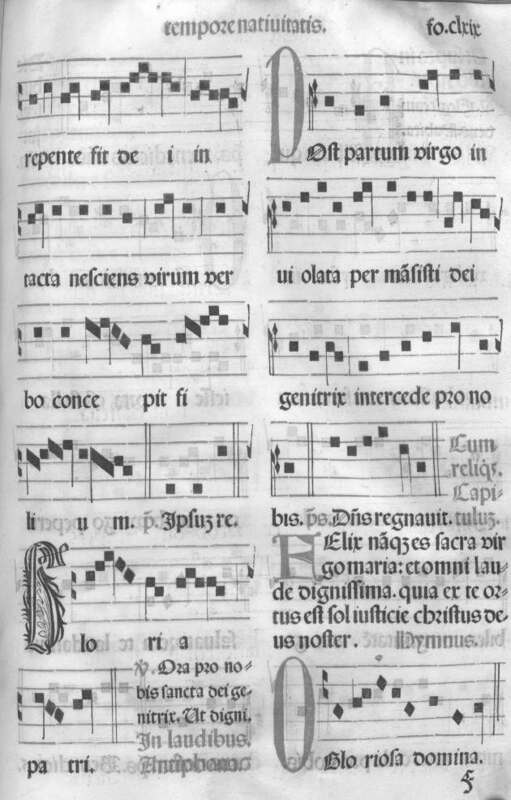 tempore natiuitatis. fo.clxix
repente fit de i in
tacta nesciens virum ver
bo conce pit fi
li u m. p̄. Ipsuʒ re.
Glo ri a
℣. Ora pro no-
bis sancta dei ge-
nitrix. Ut digni.
In laudibus.
pa tri. Antiphona.
POst partum virgo in
ui olata per māsisti dei
genitrix intercede pro no
Cum
reliqʒ.
Capi-
bis. p̄s. Dn̄s regnauit. tuluʒ.
FElix nāqʒ es sacra vir
go maria: et omni lau-
de dignissima. quia ex te or-
tus est sol iusticie christus de-
us noster. Hymnus.
O Glo riosa domina.